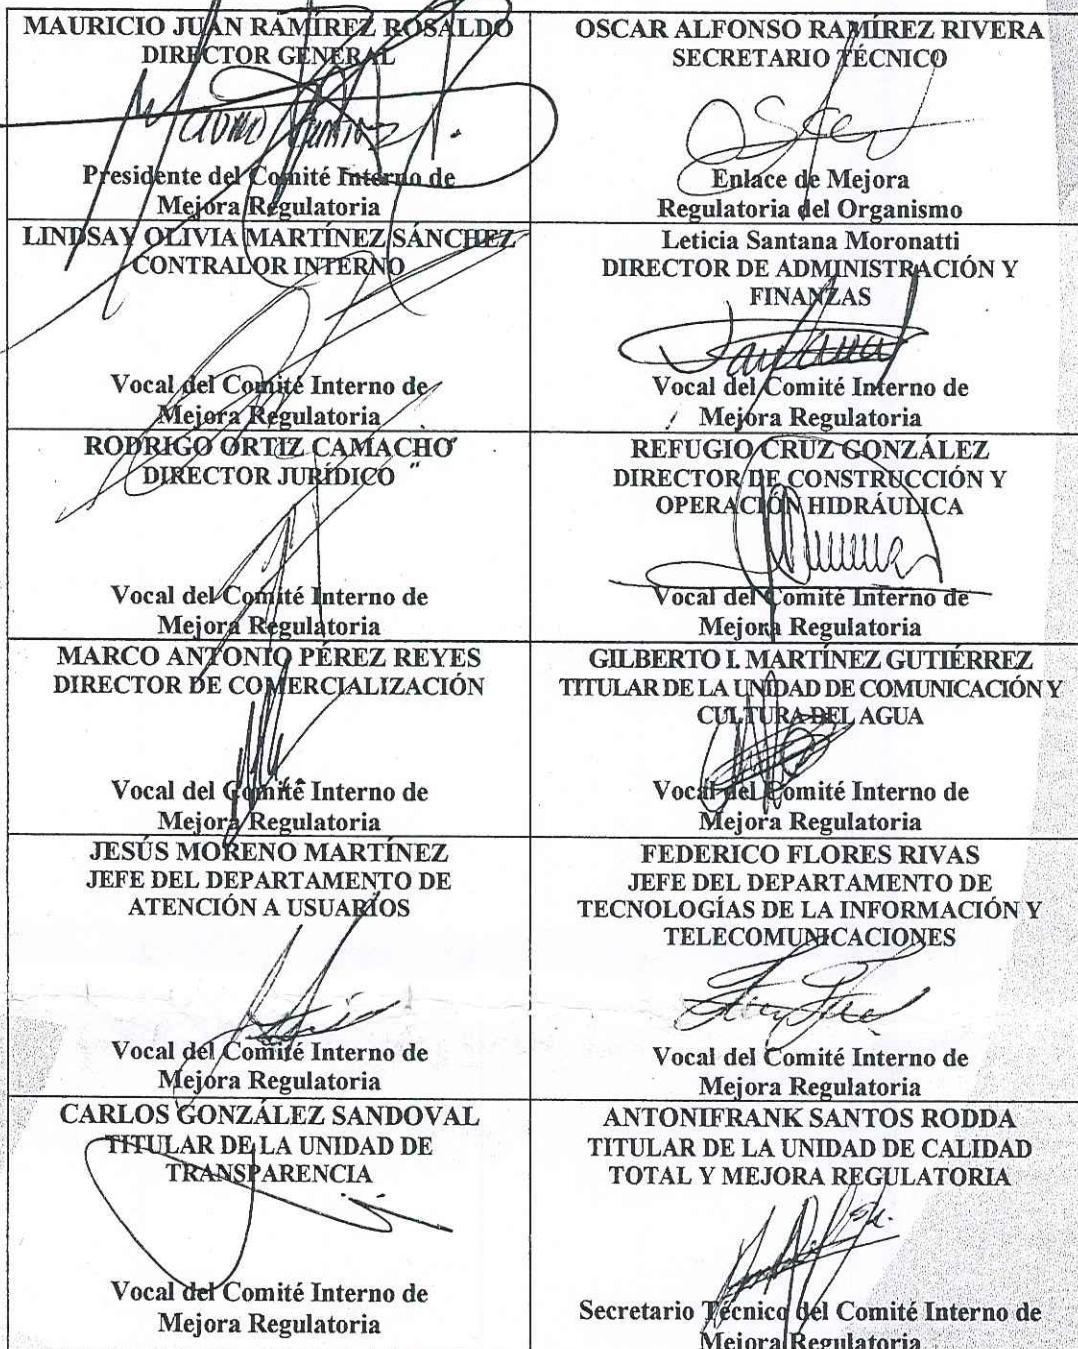 MAURICIO JUAN RAMÍREZ ROSALDO
DIRECTOR GENERAL
Presidente del Comité Interno de
Mejora Regulatoria
OSCAR ALFONSO RAMÍREZ RIVERA
SECRETARIO TÉCNICO
Enlace de Mejora
Regulatoria del Organismo
LINDSAY OLIVIA MARTÍNEZ SÁNCHEZ
CONTRALOR INTERNO
Vocal del Comité Interno de
Mejora Regulatoria
Leticia Santana Moronatti
DIRECTOR DE ADMINISTRACIÓN Y
FINANZAS
Vocal del Comité Interno de
Mejora Regulatoria
RODRIGO ORTIZ CAMACHO
DIRECTOR JURÍDICO
Vocal del Comité Interno de
Mejora Regulatoria
REFUGIO CRUZ GONZÁLEZ
DIRECTOR DE CONSTRUCCIÓN Y
OPERACIÓN HIDRÁULICA
Vocal del Comité Interno de
Mejora Regulatoria
MARCO ANTONIO PÉREZ REYES
DIRECTOR DE COMERCIALIZACIÓN
Vocal del Comité Interno de
Mejora Regulatoria
GILBERTO I. MARTÍNEZ GUTIÉRREZ
TITULAR DE LA UNIDAD DE COMUNICACIÓN Y
CULTURA DEL AGUA
Vocal del Comité Interno de
Mejora Regulatoria
JESÚS MORENO MARTÍNEZ
JEFE DEL DEPARTAMENTO DE
ATENCIÓN A USUARIOS
Vocal del Comité Interno de
Mejora Regulatoria
FEDERICO FLORES RIVAS
JEFE DEL DEPARTAMENTO DE
TECNOLOGÍAS DE LA INFORMACIÓN Y
TELECOMUNICACIONES
Vocal del Comité Interno de
Mejora Regulatoria
CARLOS GONZÁLEZ SANDOVAL
TITULAR DE LA UNIDAD DE
TRANSPARENCIA
Vocal del Comité Interno de
Mejora Regulatoria
ANTONIFRANK SANTOS RODDA
TITULAR DE LA UNIDAD DE CALIDAD
TOTAL Y MEJORA REGULATORIA
Secretario Técnico del Comité Interno de
Mejora Regulatoria